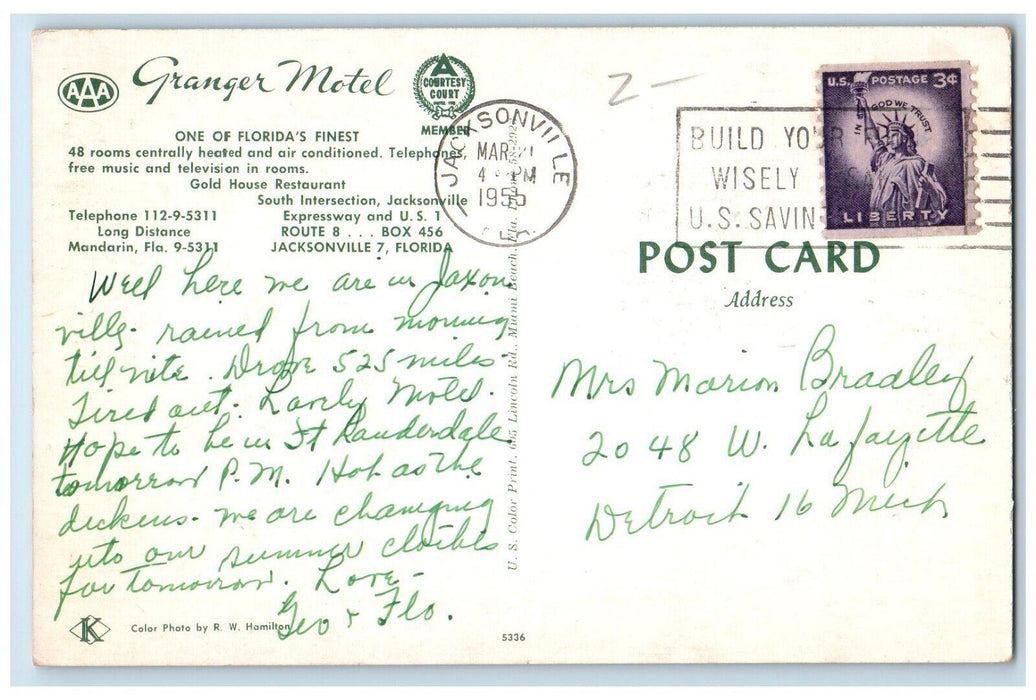 AAA
Granger Motel
COURTESY
COURT
MEMBER
ONE OF FLORIDA'S FINEST
48 rooms centrally heated and air conditioned. Telephones,
free music and television in rooms.
Gold House Restaurant
South Intersection, Jacksonville
Telephone 112-9-5311 Expressway and U.S. 1
Long Distance ROUTE 8 . . . BOX 456
Mandarin, Fla. 9-5311 JACKSONVILLE 7, FLORIDA
Well here we are in Jaxon
ville. rained from morning
till nite. Drove 525 miles
Tired out. Lovely Motel.
Hope to be in Ft Lauderdale
tomorrow P.M. Hot as the
dickens. we are changing
into our summer clothes
for tomorrow. Love -
Geo & Flo.
K
Color Photo by R. W. Hamilton
5336
U. S. Color Print, 605 Lincoln Rd., Miami Beach, Fla. 58-292
JACKSONVILLE
MAR 21
4 PM
1955
2-
BUILD YOUR
WISELY
U.S. SAVIN
U.S. POSTAGE 3¢
IN GOD WE TRUST
LIBERTY
POST CARD
Address
Mrs Marion Bradley
2048 W. Lafayette
Detroit 16 Mich